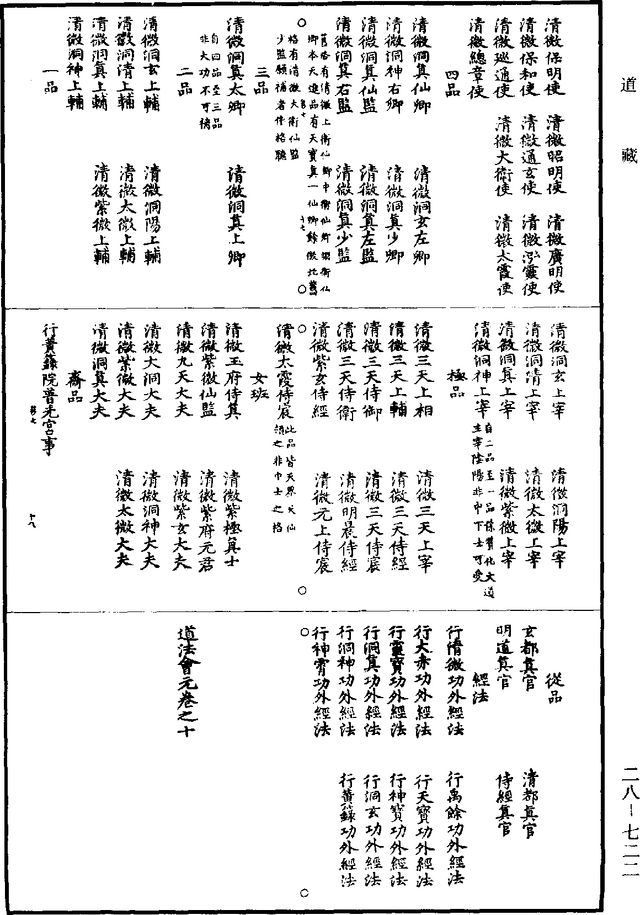 道藏
清微保明使　清微昭明使　清微廣明使
清微保和使　清微通玄使　清微泓靈使
清微巡通使　清微大衛使　清微太霞使
清微總章使
四品
清微洞真仙卿　清微洞玄左卿
清微洞神右卿　清微洞真少卿
清微洞真仙監　清微洞真左監
清微洞真右監　清微洞真少監
舊格有清微上衛仙卿中衛仙卿領衛仙
卿本天進品有天寶真一仙卿餘倣此舊
格有清微大衛仙監
少監願補者作格聽
三品
清微洞真太卿　清微洞真上卿
自四品至三品
非大功不可補
二品
清微洞玄上輔　清微洞陽上輔
清微洞清上輔　清微太微上輔
清微洞真上輔　清微紫微上輔
清微洞神上輔
一品
清微洞玄上宰　清微洞陽上宰
清微洞清上宰　清微太微上宰
清微洞真上宰　清微紫微上宰
清微洞神上宰　自二品至一品係贊化大道
主宰陰陽非中下士可受
極品
清微三天上相　清微三天上宰
清微三天上輔　清微三天侍經
清微三天侍御　清微三天侍宸
清微三天侍衛　清微明晨侍經
清微紫玄侍經　清微元上侍宸
清微太霞侍宸　此品皆天界天仙
領之非中士之格
女班
清微玉府侍真　清微紫極真士
清微紫微仙監　清微紫府元君
清微九天大夫　清微紫玄大夫
清微大洞大夫　清微洞神大夫
清微紫微大夫　清微太微大夫
清微洞真大夫
齋品
行黃籙院普光宮事
第七　十八
從品
玄都真官　清都真官
明道真官　侍經真官
經法
行清微功外經法　行禹餘功外經法
行大赤功外經法　行天寶功外經法
行靈寶功外經法　行神寶功外經法
行洞真功外經法　行洞玄功外經法
行洞神功外經法　行黃籙功外經法
行神霄功外經法
道法會元卷之十
二八—七二二